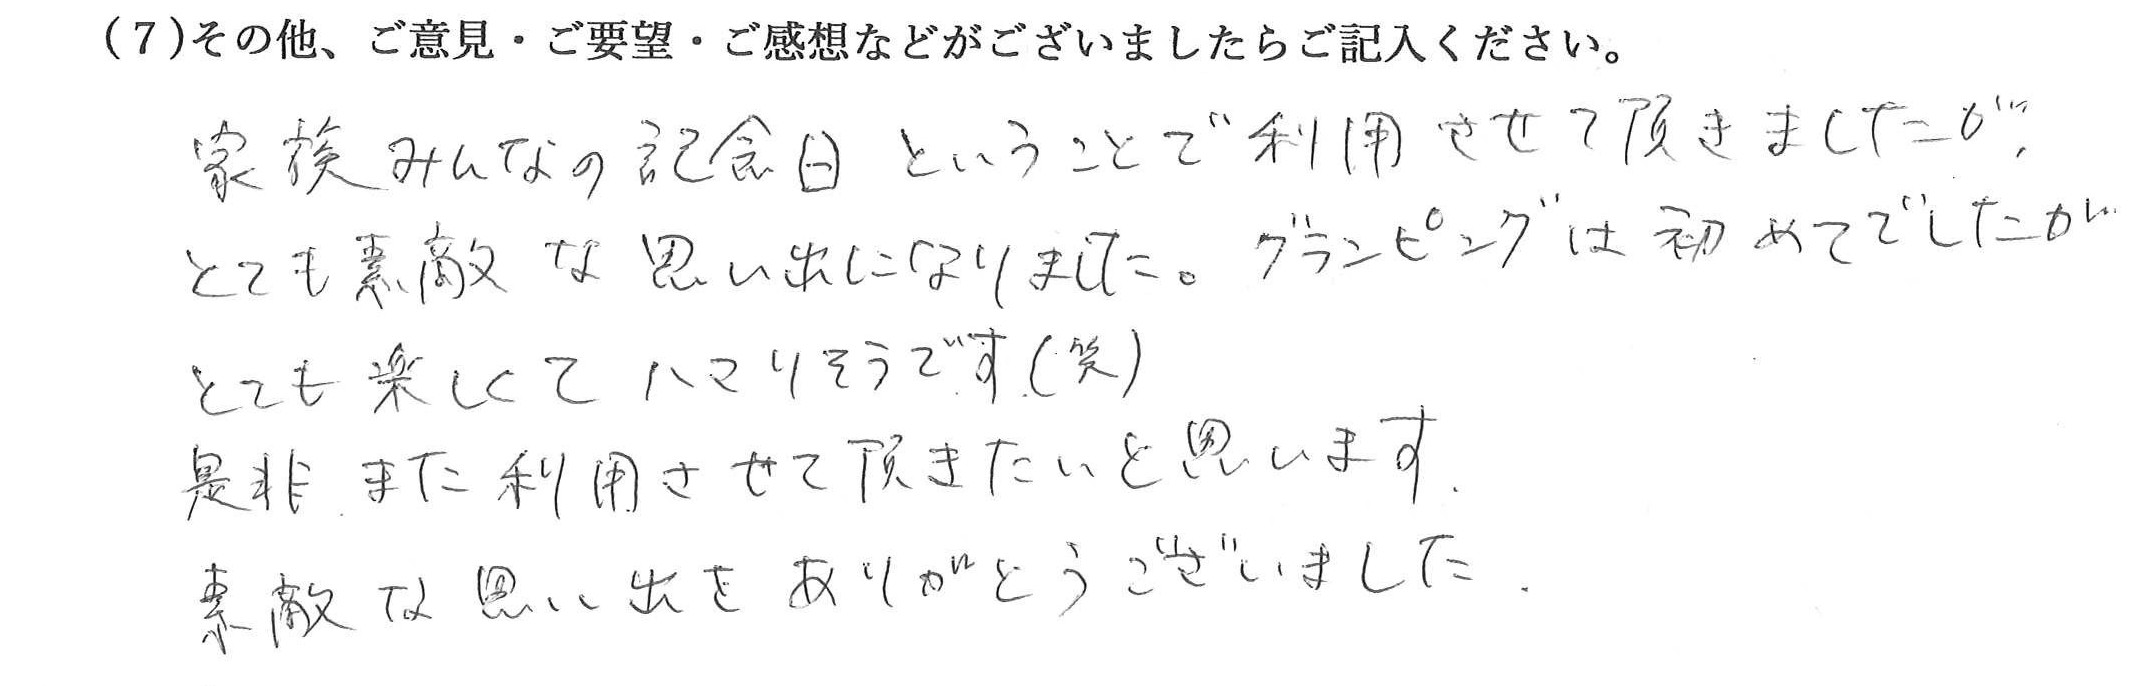 (7)その他、ご意見・ご要望・ご感想などがございましたらご記入ください。
家族みんなの記念日ということで利用させて頂きましたが、
とても素敵な思い出になりました。グランピングは初めてでしたが
とても楽しくてハマりそうです(笑)
是非また利用させて頂きたいと思います.
素敵な思い出をありがとうございました.